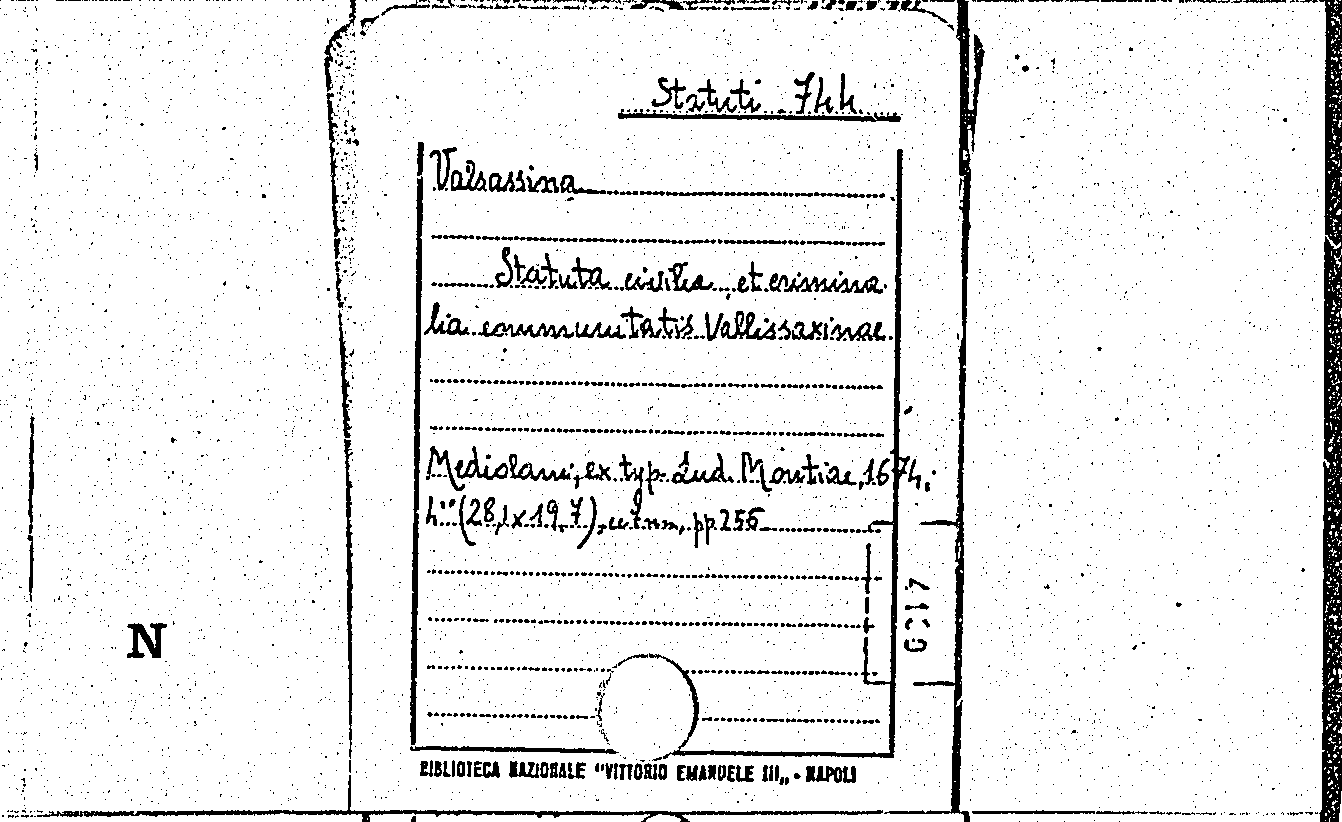 Statuti 744
Valsassina
Statuta civilia et crimina
lia communitatis Vallissaxinae.
Mediolani, ex typ. Lud. Montiae, 1674.
4° (28,1x19,7), pp 256
N
BIBLIOTECA NAZIONALE "VITTORIO EMANUELE III„ - NAPOLI